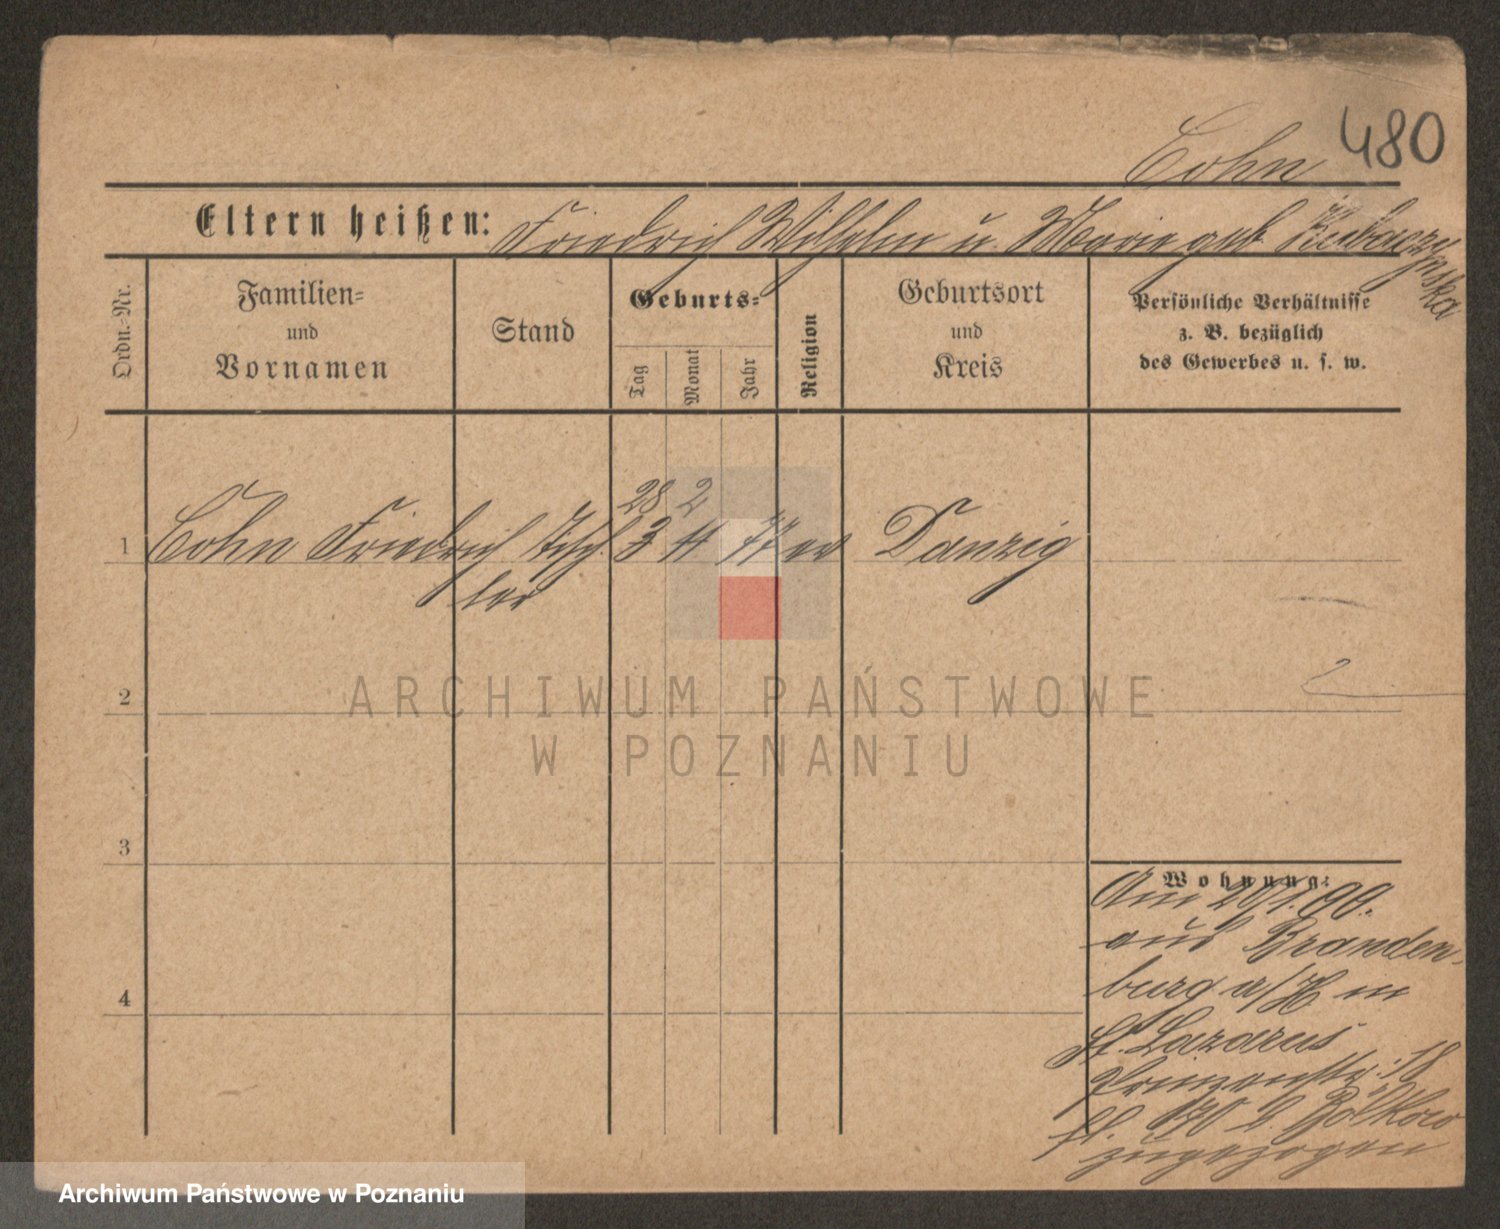 480
Cohn
Eltern heißen: Friedrich Wilhelm u. Marie geb.
Ordn.-Nr.
Familien-
und
Vornamen
Stand
Geburts-
Tag
Monat
Jahr
Religion
Geburtsort
und
Kreis
Persönliche Verhältnisse
z. B. bezüglich
des Gewerbes u. s. w.
28 2
1 Cohn Friedrich Tisch 3 4 77 ev Danzig
ler
2
3
4
Wohnung:
Am
aus Branden-
burg a/H in
St. Lazarus
Prinzenstr. 18
zugezogen
ARCHIWUM PAŃSTWOWE
W POZNANIU
Archiwum Państwowe w Poznaniu